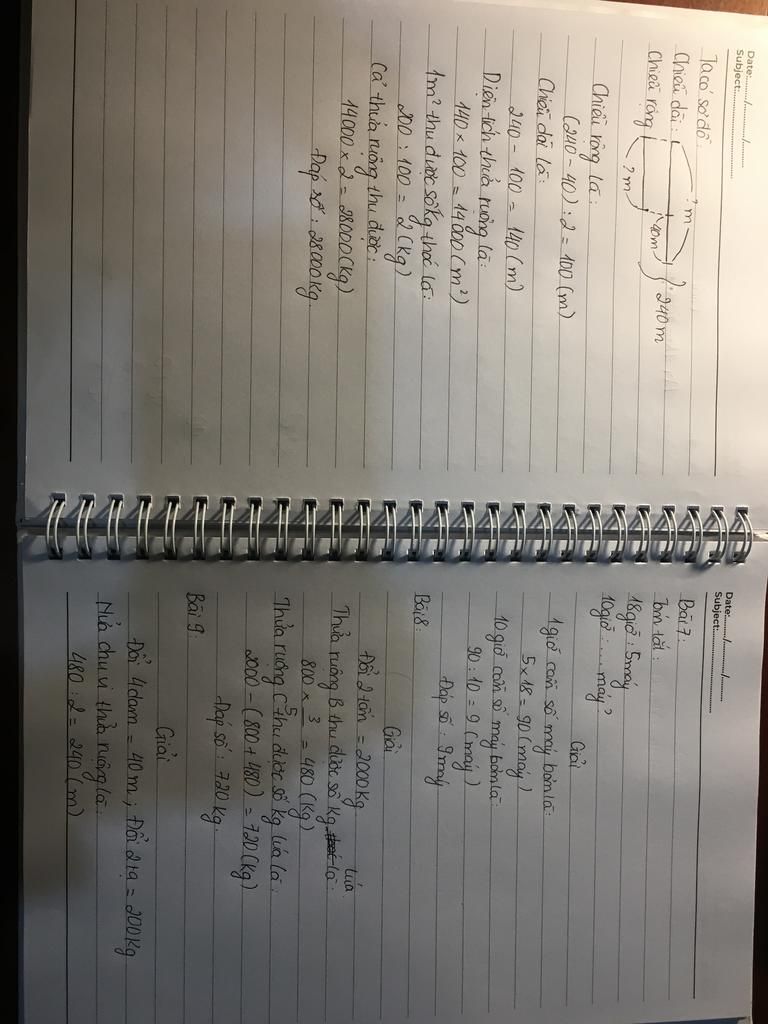 Date:....../....../......
Subject:
Ta có sơ đồ:
Chiều dài:
? m
40m
240 m
Chiều rộng
? m
Chiều rộng là:
(240 - 40) : 2 = 100 (m)
Chiều dài là:
240 - 100 = 140 (m)
Diện tích thửa ruộng là:
140 × 100 = 14000 (m²)
1m² thu được số kg thóc là:
200 : 100 = 2 (kg)
Cả thửa ruộng thu được:
14000 × 2 = 28000 (kg)
Đáp số: 28000 kg.
Date:....../....../......
Subject:
Bài 7:
Tóm tắt:
18giờ: 5 máy
10giờ: .... máy?
Giải
1 giờ cần số máy bơm là:
5 × 18 = 90 (máy)
10 giờ cần số máy bơm là:
90 : 10 = 9 (máy)
Đáp số: 9 máy
Bài 8:
Giải
Đổi 2 tấn = 2000 kg
Thửa ruộng B thu được số kg lúa là:
800 × 3/5 = 480 (kg)
Thửa ruộng C thu được số kg lúa là:
2000 - (800 + 480) = 720 (kg)
Đáp số: 720 kg.
Bài 9:
Giải
Đổi 4dam = 40 m; Đổi 2 tạ = 200 kg
Nửa chu vi thửa ruộng là:
480 : 2 = 240 (m)